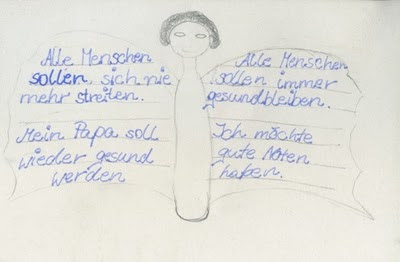 Alle Menschen
sollen, sich nie
mehr streiten.
Mein Papa soll
wieder gesund
werden
Alle Menschen
sollen immer
gesundbleiben.
Ich möchte
gute Noten
haben.